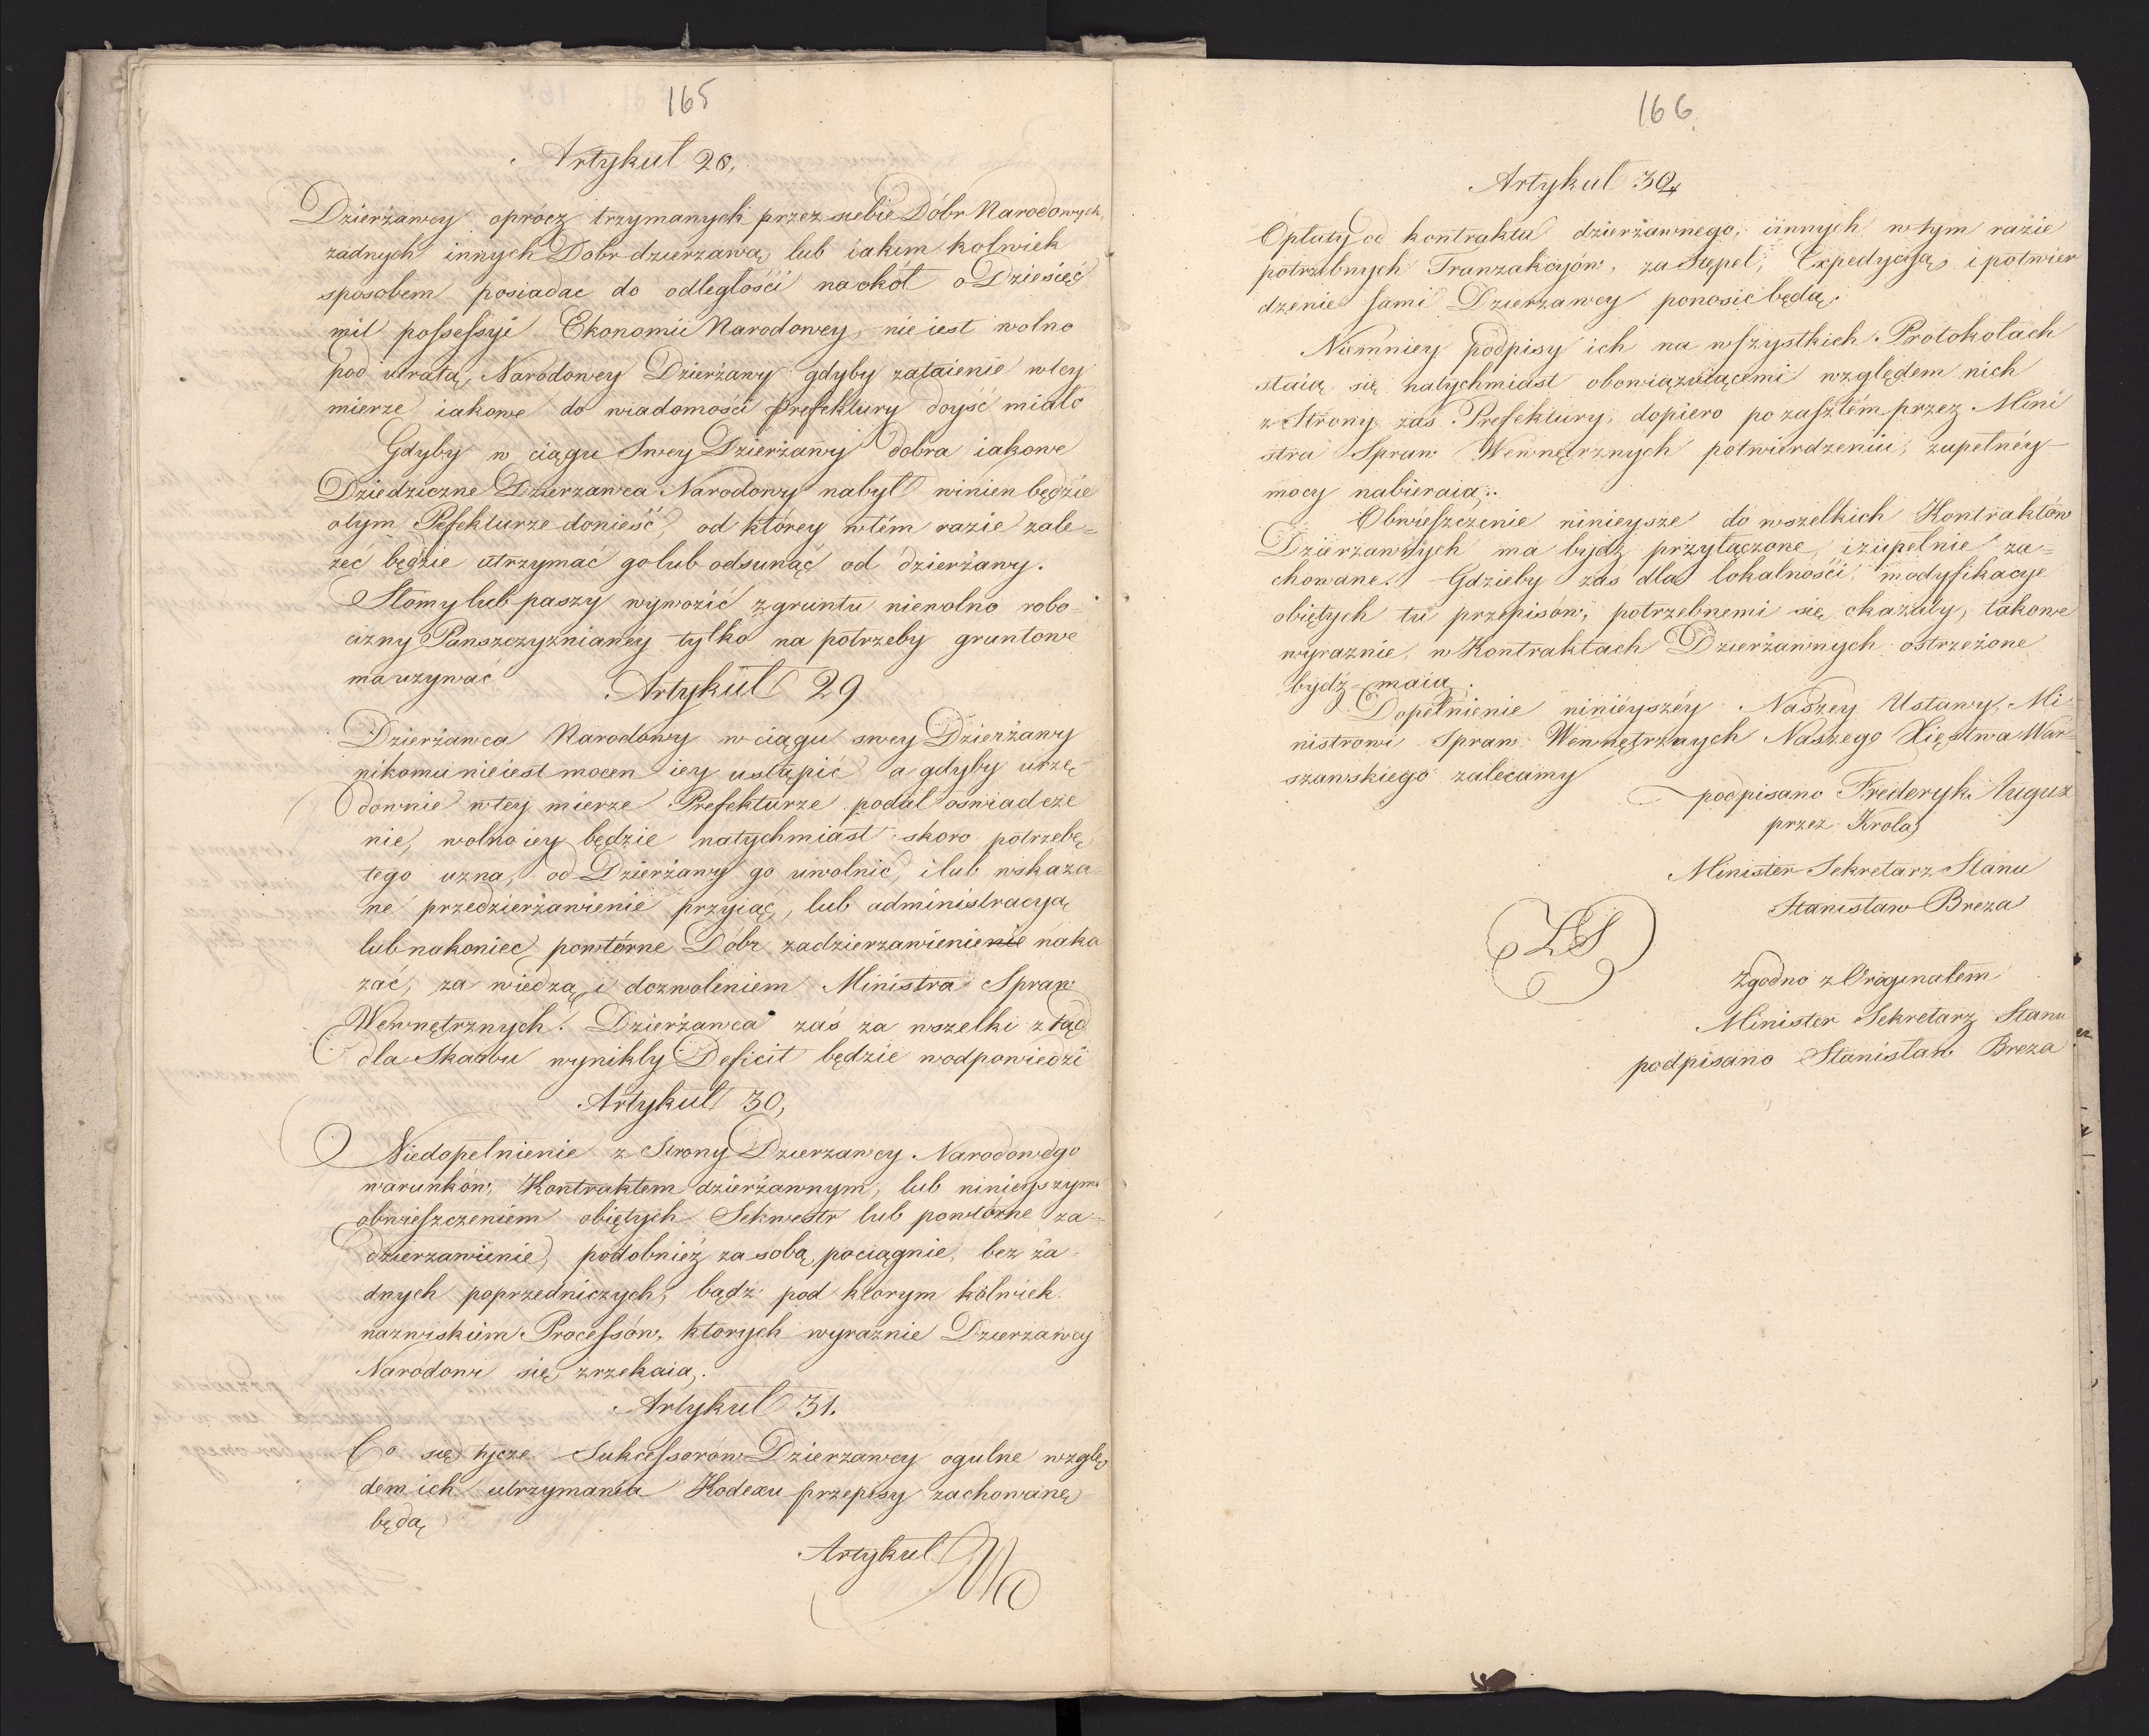 165
Artykuł 28,
Dzierżawcy oprócz trzymanych przez siebie Dóbr Narodowych,
żadnych innych Dobr dzierzawą lub iakim kolwiek
sposobem posiadać do odległości naokół o Dziesięć
mil possessyi Ekonomii Narodowey, nie iest wolno
pod utratą, Narodowey Dzierżawy gdyby zataienie wtey
mierze iakowe do wiadomości Prefektury doyść miało
Gdyby w ciągu Swey Dzierżawy dobra iakowe
Dziedziczne Dzierzawca Narodowy nabył winien będzie
otym Pefekturze donieść, od którey wtém razie zale=
żeć będzie utrzymać go lub odsunąć od dzierżawy.
Słomy lub paszy wywozić zgruntu niewolno robo
cizny Panszczyznianéy tylko na potrzeby gruntowe
ma uzywać
Artykuł 29
Dzierżawca Narodowy w ciągu swey Dzierżawy
nikomu nieiest mocen iey ustąpić a gdyby urzę-
downie wtey mierze Prefekturze podał oswiadcze
nie, wolno iey będzie natychmiast skoro potrzebę
tego uzna, od Dzierżawy go uwolnić, i lub wskaza
ne przedzierżawienie przyiąć, lub administracyą
lub nakoniec powtórne Dóbr zadzierzawienienie naka
zać, za wiedzą i dozwoleniem Ministra Spraw
Wewnętrznych. Dzierżawca zaś za wszelki ztąd
dla Skarbu wynikły Deficit będzie wodpowiedzi
Artykuł 30,
Niedopełnienie z Strony Dzierzawcy Narodowego
warunków, Kontraktem dzierżawnym, lub ninieyszym
obwieszczeniem obiętych Sekwestr lub powtórne za-
dzierzawienie, podobnież za sobą pociągnie, bez ża-
dnych poprzedniczych, bądź pod którym kolwiek
nazwiskiem Processów, ktorych wyraznie Dzierzawcy
Narodowi się zrzekaią.
Artykuł 31.
Co się tycze Sukcessorów Dzierzawcy ogulne wzglę
dem ich utrzymania Kodexu przepisy zachowane
będą
Artykuł
166
Artykuł 32
Opłaty od kontraktu dzierżawnego, iinnych wtym razie
potrzebnych Tranzakcyów, za Stępel, Expedycyą, i potwier
dzenie sami Dzierżawcy ponosić będą.
Niemniey podpisy ich na wszystkich Protokołach
staią się natychmiast obowiązuiącemi względem nich
z Strony zaś Prefektury, dopiero po zaszłém przez Mini
stra Spraw Wewnętrznych potwierdzeniu, zupełnéy
mocy nabieraią.
Obwieszczenie ninieysze do wszelkich Kontraktów
Dzierżawnych ma bydź przyłączone, i zupełnie za=
chowane. Gdzieby zaś dla lokalności, modyfikacye
obiętych tu przepisów, potrzebnemi się okazały, takowe
wyraznie, w Kontraktach Dzierżawnych ostrzeżone
bydź maią.
Dopełnienie ninieyszéy Naszey Ustawy, Mi=
nistrowi Spraw Wewnętrznych Naszego Xięstwa War=
szawskiego zalecamy
podpisano Frederyk August
przez Krola,
Minister Sekretarz Stanu
Stanisław Breza
LS
Zgodno z Oroginałem
Minister Sekretarz Stanu
podpisano Stanisław Breza